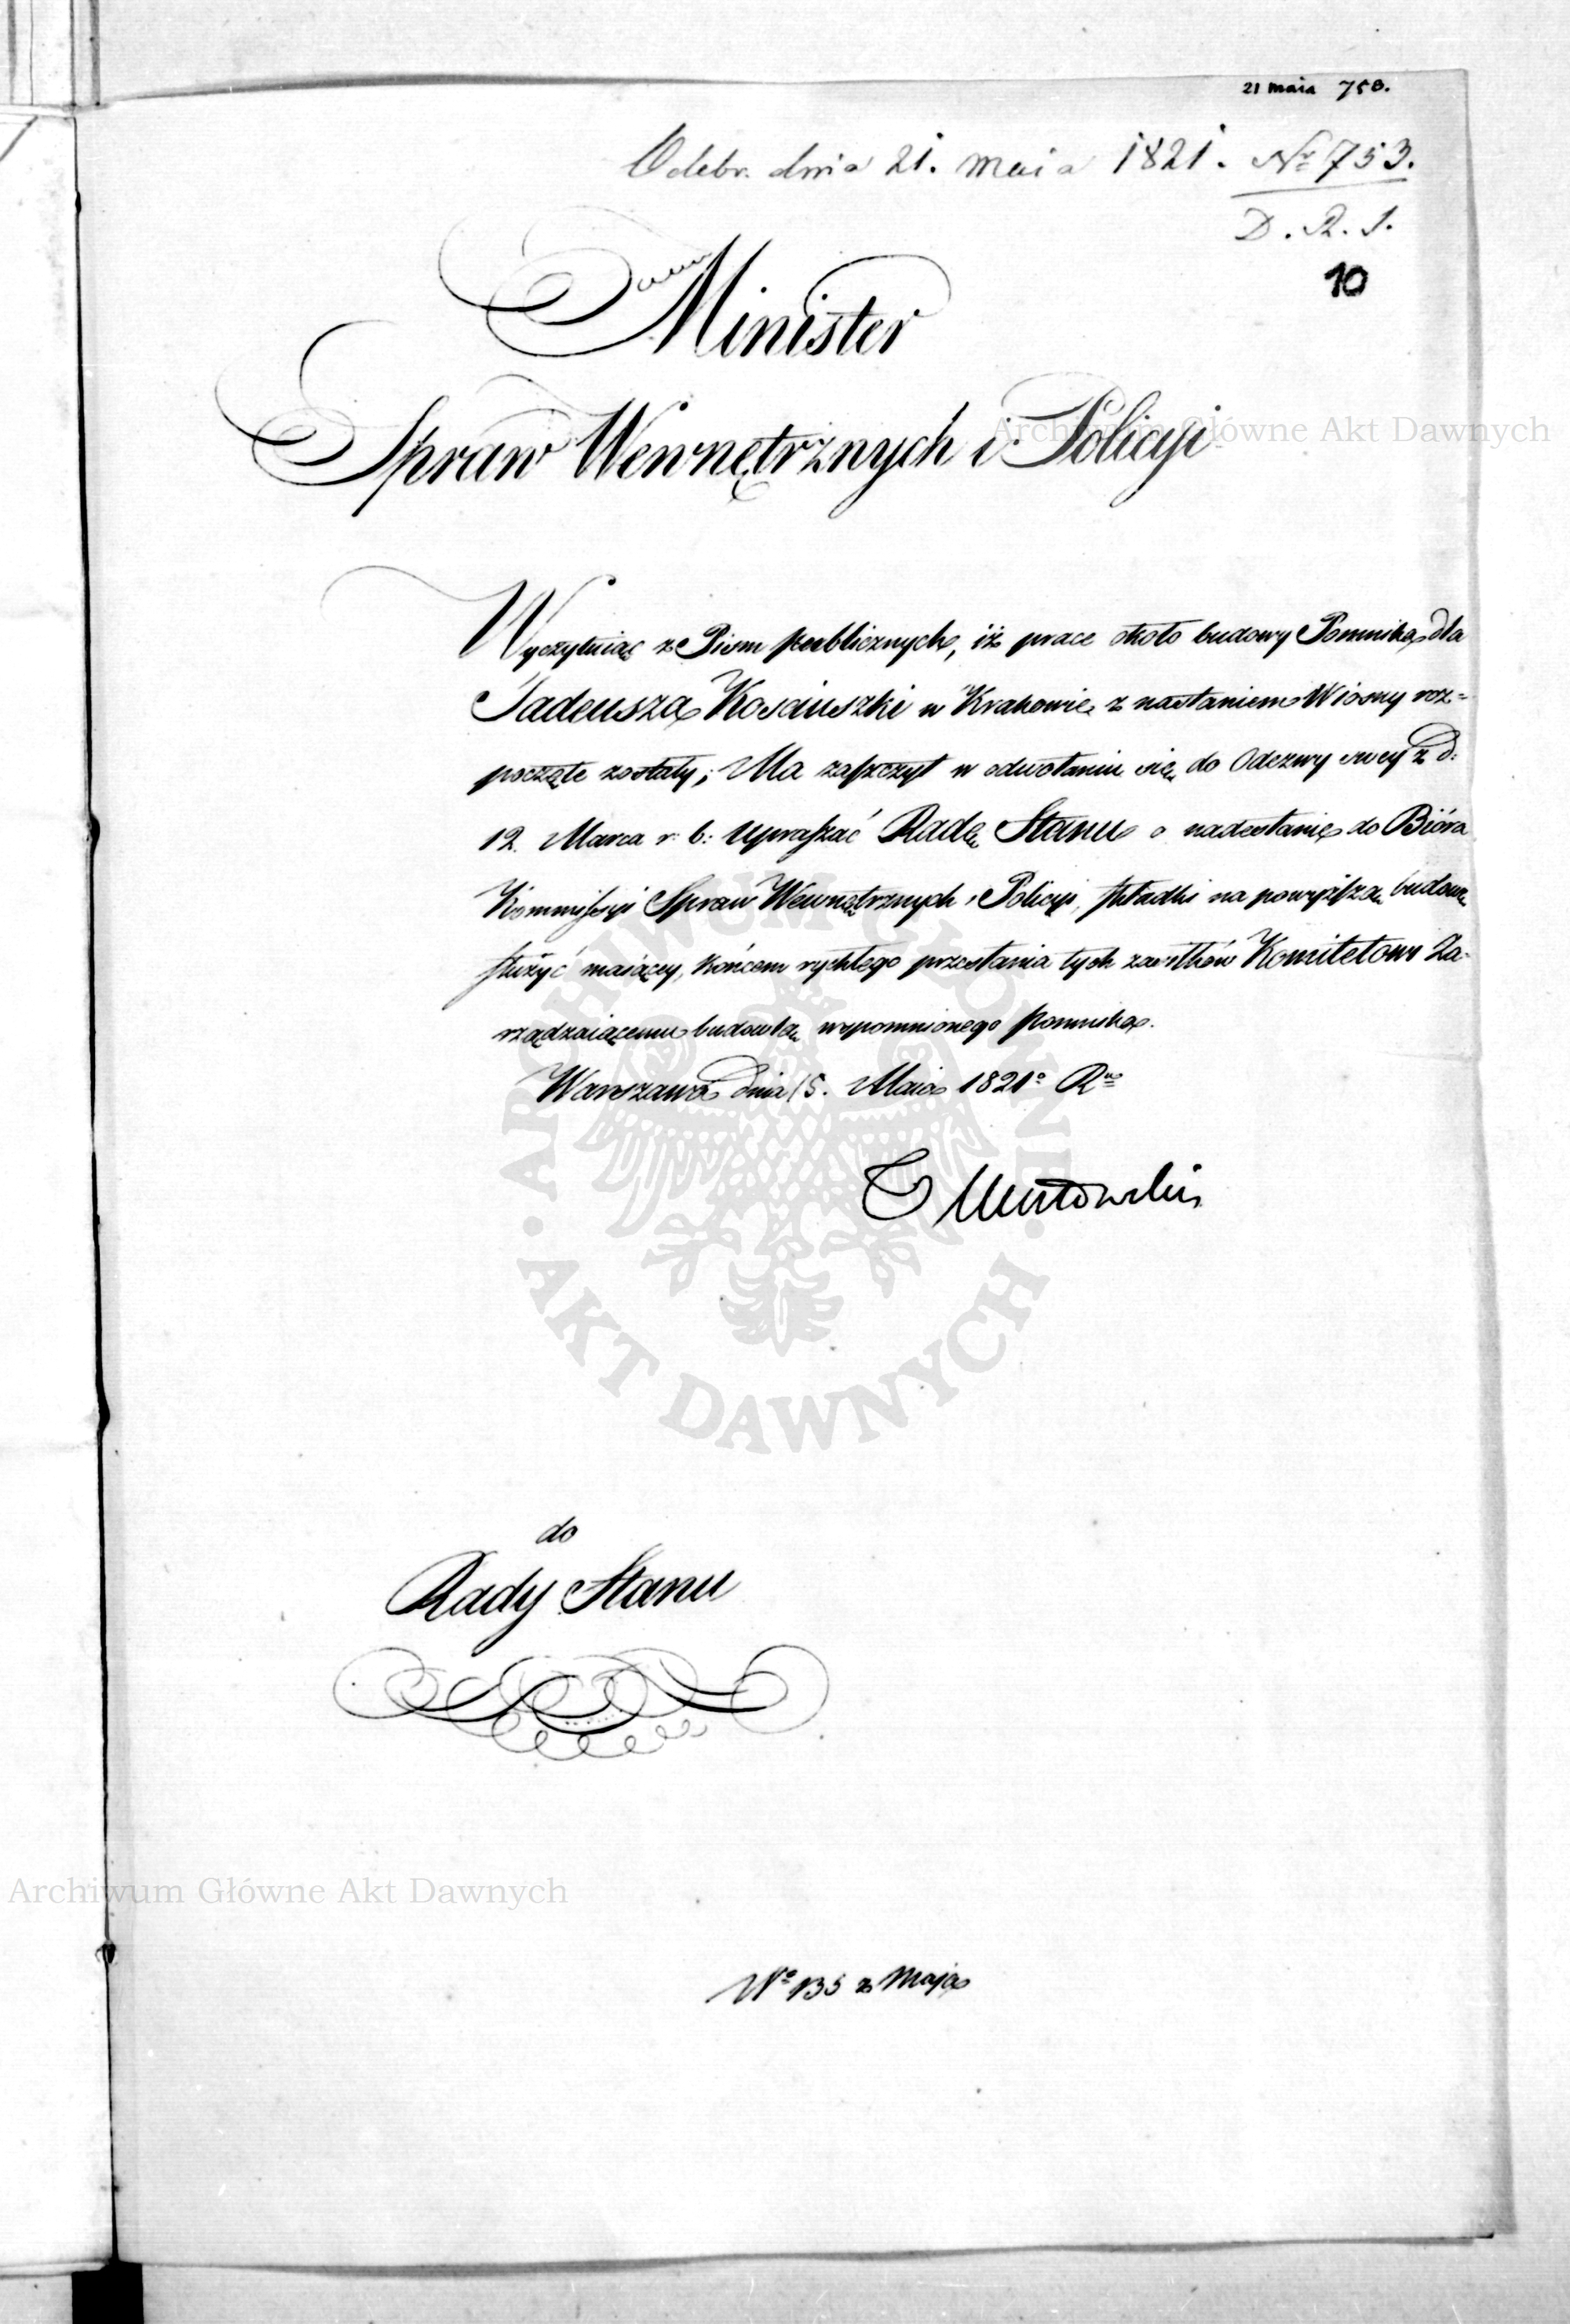 21 maia 753.
Odebr. dnia 21. maia 1821. Nr 753.
D. R. S.
10
Minister
Spraw Wewnętrznych i Policyi
Archiwum Główne Akt Dawnych
Wyczytuiąc z Pism publicznych, iż prace około budowy Pomnika dla
Tadeusza Kosciuszki w Krakowie z nastaniem Wiosny roz=
poczęte zostały; Ma zaszczyt w odwołaniu się do Odezwy swey z d:
12. Marca r. b: upraszać Radę Stanu o nadesłanie do Bióra
Kommissyi Spraw Wewnętrznych i Policyi, składki na powyższą budowę
służyć maiącey, końcem rychłego przesłania tych zasiłków Komitetowi Za=
rządzaiącemu budowlą wspomnionego Pomnika.
Warszawa dnia 15. Maia 1821o Ru
T Mostowski
ARCHIWUM GŁÓWNE
AKT DAWNYCH
do
Rady Stanu
Archiwum Główne Akt Dawnych
No 135 z Maja